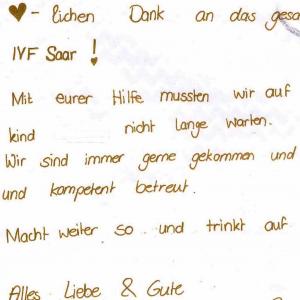 ♥-lichen Dank an das gesa
IVF Saar!
Mit eurer Hilfe mussten wir auf
kind nicht lange warten.
Wir sind immer gerne gekommen und
und kompetent betreut.
Macht weiter so und trinkt auf
Alles Liebe & Gute